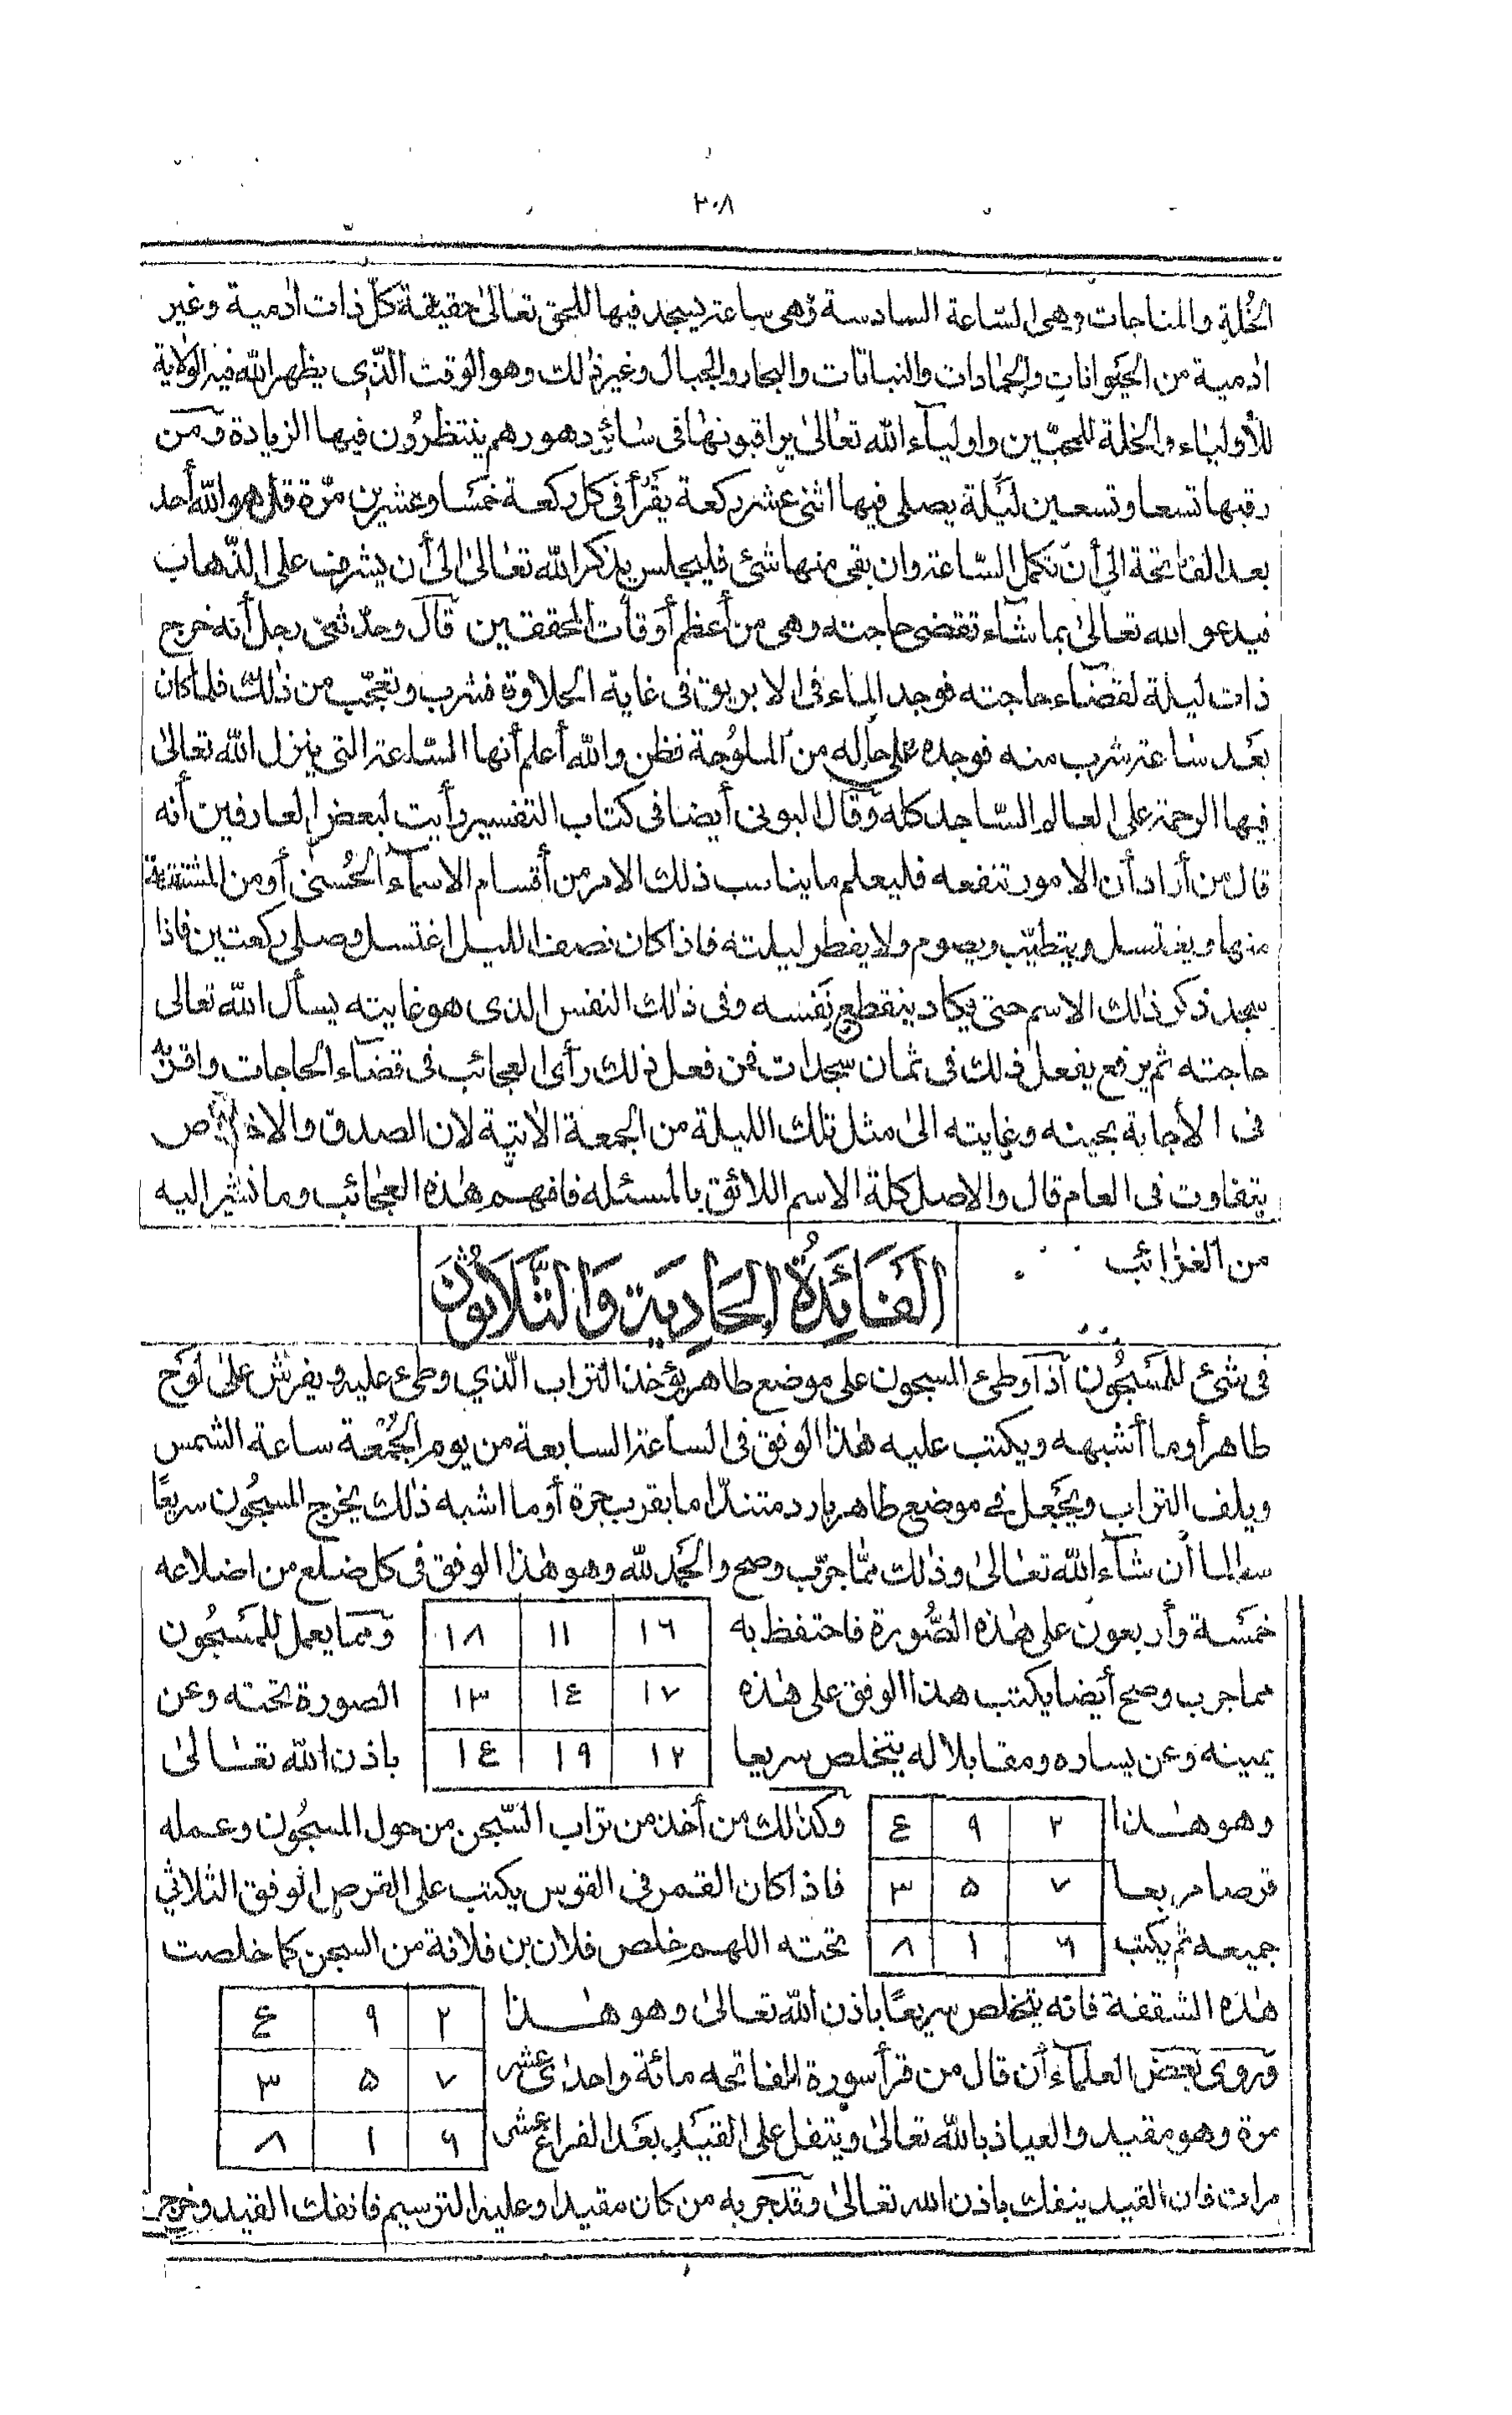 ٣٠٨
الخُلة والمناجات وهى السّاعة السادسة وهى ساعة يسجد فيها للحق تعالىٰ حقيقة كلّ ذات اٰدمية وغير
اٰدمية من الحَيوانات والجَمادات والنباتات والبحار والجبال وغير ذٰلك وهو الوقت الذّى يظهر اللّٰه فيه الولاية
للأولياء والخلة للمحبّين واولياٰء اللّٰه تعالىٰ يراقبونها فى سائر دهورهم ينتظرُون فيها الزيادة وَمن
رقبها تسعا وتسعين ليَلة يصلى فيها اثنى عشر ركعة يقَرأ فى كل ركعة خمسَا وعشرين مرّة قل هو اللّٰه أحد
بعد الفاتحة الىٰ أن تكمل السّاعة وان بقى منها شئ فليجلس يذكر اللّٰه تعالىٰ الىٰ أن يشرف على الذّهاب
فيدعو اللّٰه تعالىٰ بما شاٰء تقضى حاجته وهى من أعظم أوقات المحققين قال وحدّثنى رجل أنه خرج
ذات ليلة لقضاٰء حاجته فوجد الماء فى الابريق فى غاية الحلاوة فشرب وتعجّب من ذٰلك فلما كان
بعَد ساعة شرب منه فوجده على حاله من الملوُحة فظن واللّٰه أعلم أنها السّاعة التى ينزل اللّٰه تعالىٰ
فيها الرحمة على العالم السّاجد كله وقال البونى أيضا فى كتاب التفسير رأيت لبعض العارفين أنه
قال من أراد أن الامور تنفعه فليعلم ما يناسب ذلك الامر من أقسام الاسماٰء الحُسنىٰ أو من المشتقة
منها ويغتسل ويتطيّب ويصوم ولا يفطر ليلته فاذا كان نصف الليل اغتسل وصلى ركعتين فاذا
سجد ذكر ذٰلك الاسم حتى يكاد ينقطع نَفسه وفى ذٰلك النفس الذى هو غايته يسأل اللّٰه تعالى
حاجته ثم يرفع يفعل ذلك فى ثمان سجدات فمن فعل ذٰلك رأى العجائب فى قضاٰء الحاجات واقترنَ
فى الأجابة بحينه وغايته الىٰ مثل تلك الليلة من الجمعة الاٰتيّة لان الصدق والاخلاص
يتفاوت فى العام قال والاصل كلة الاسم اللائق بالمسئله فافهم هٰذه العجٰائب وما نشير اليه
من الغرٰائب
الفَائِدةُ الحَادِيَة وَالثَّلَاثُونَ
فى شئ للمَسَجُون اذا وطئ المسجون على موضع طاهر يؤخذ التراب الّذي وطئ عليه ويفرش علىٰ لَوح
طاهر أو ما أشبهه ويكتب عليه هٰذا الوفق فى الساعة السابعة من يوم الجُمُعَة ساعة الشمس
ويلف التراب ويجَعل فى موضع طاهر بارد متندّ اما بقرب جرة أو ما اشبه ذٰلك يخرج المسجُون سريعًا
سالما أن شاٰء اللّٰه تعالىٰ وذٰلك ممّا جرّب وصح والحَمد للّٰه وهو هٰذا الوفق فى كل ضلع من اضلاعه
خمَسة وأربعون على هٰذه الصُّورة فاحتفظ به ١٦ ١١ ١٨ وَمما يعمل للمَسَجُون
مما جرب وصح أيضا يكتب هذا الوفق على هٰذه ١٧ ١٤ ١٣ الصورة تحته وعن
يمينه وعن يساره ومقابلا له يتخلص سريعا ١٢ ١٩ ١٤ باذن اللّٰه تعَالىٰ
وهو هٰذا ٢ ٩ ٤ وكذٰلك من أخذ من تراب السّجن من حول المسجُون وعمله
قرصا مربعا ٧ ٥ ٣ فاذا كان القمر فى القوس يكتب على القرص الوفق الثلاثي
جميعه ثم يكتب ٦ ١ ٨ تحته اللهم خلص فلان بن فلانة من السجن كما خلصت
هٰذه الشقفة فانه يتخلص سريعًا باذن اللّٰه تعالىٰ وهو هٰذا ٢ ٩ ٤
وروى بعض العلماٰء أن قال من قرأ سورة الفاتحه مائة واحدٰى عشر ٧ ٥ ٣
مرة وهو مقيد والعياذ باللّٰه تعالىٰ ويتفل على القيَد بعَد الفراغ عشر ٦ ١ ٨
مرات فان القيد ينفك باذن اللّٰه تعالىٰ وقد جربه من كان مقيدا وعليه الترسيم فانفك القيد وخرج